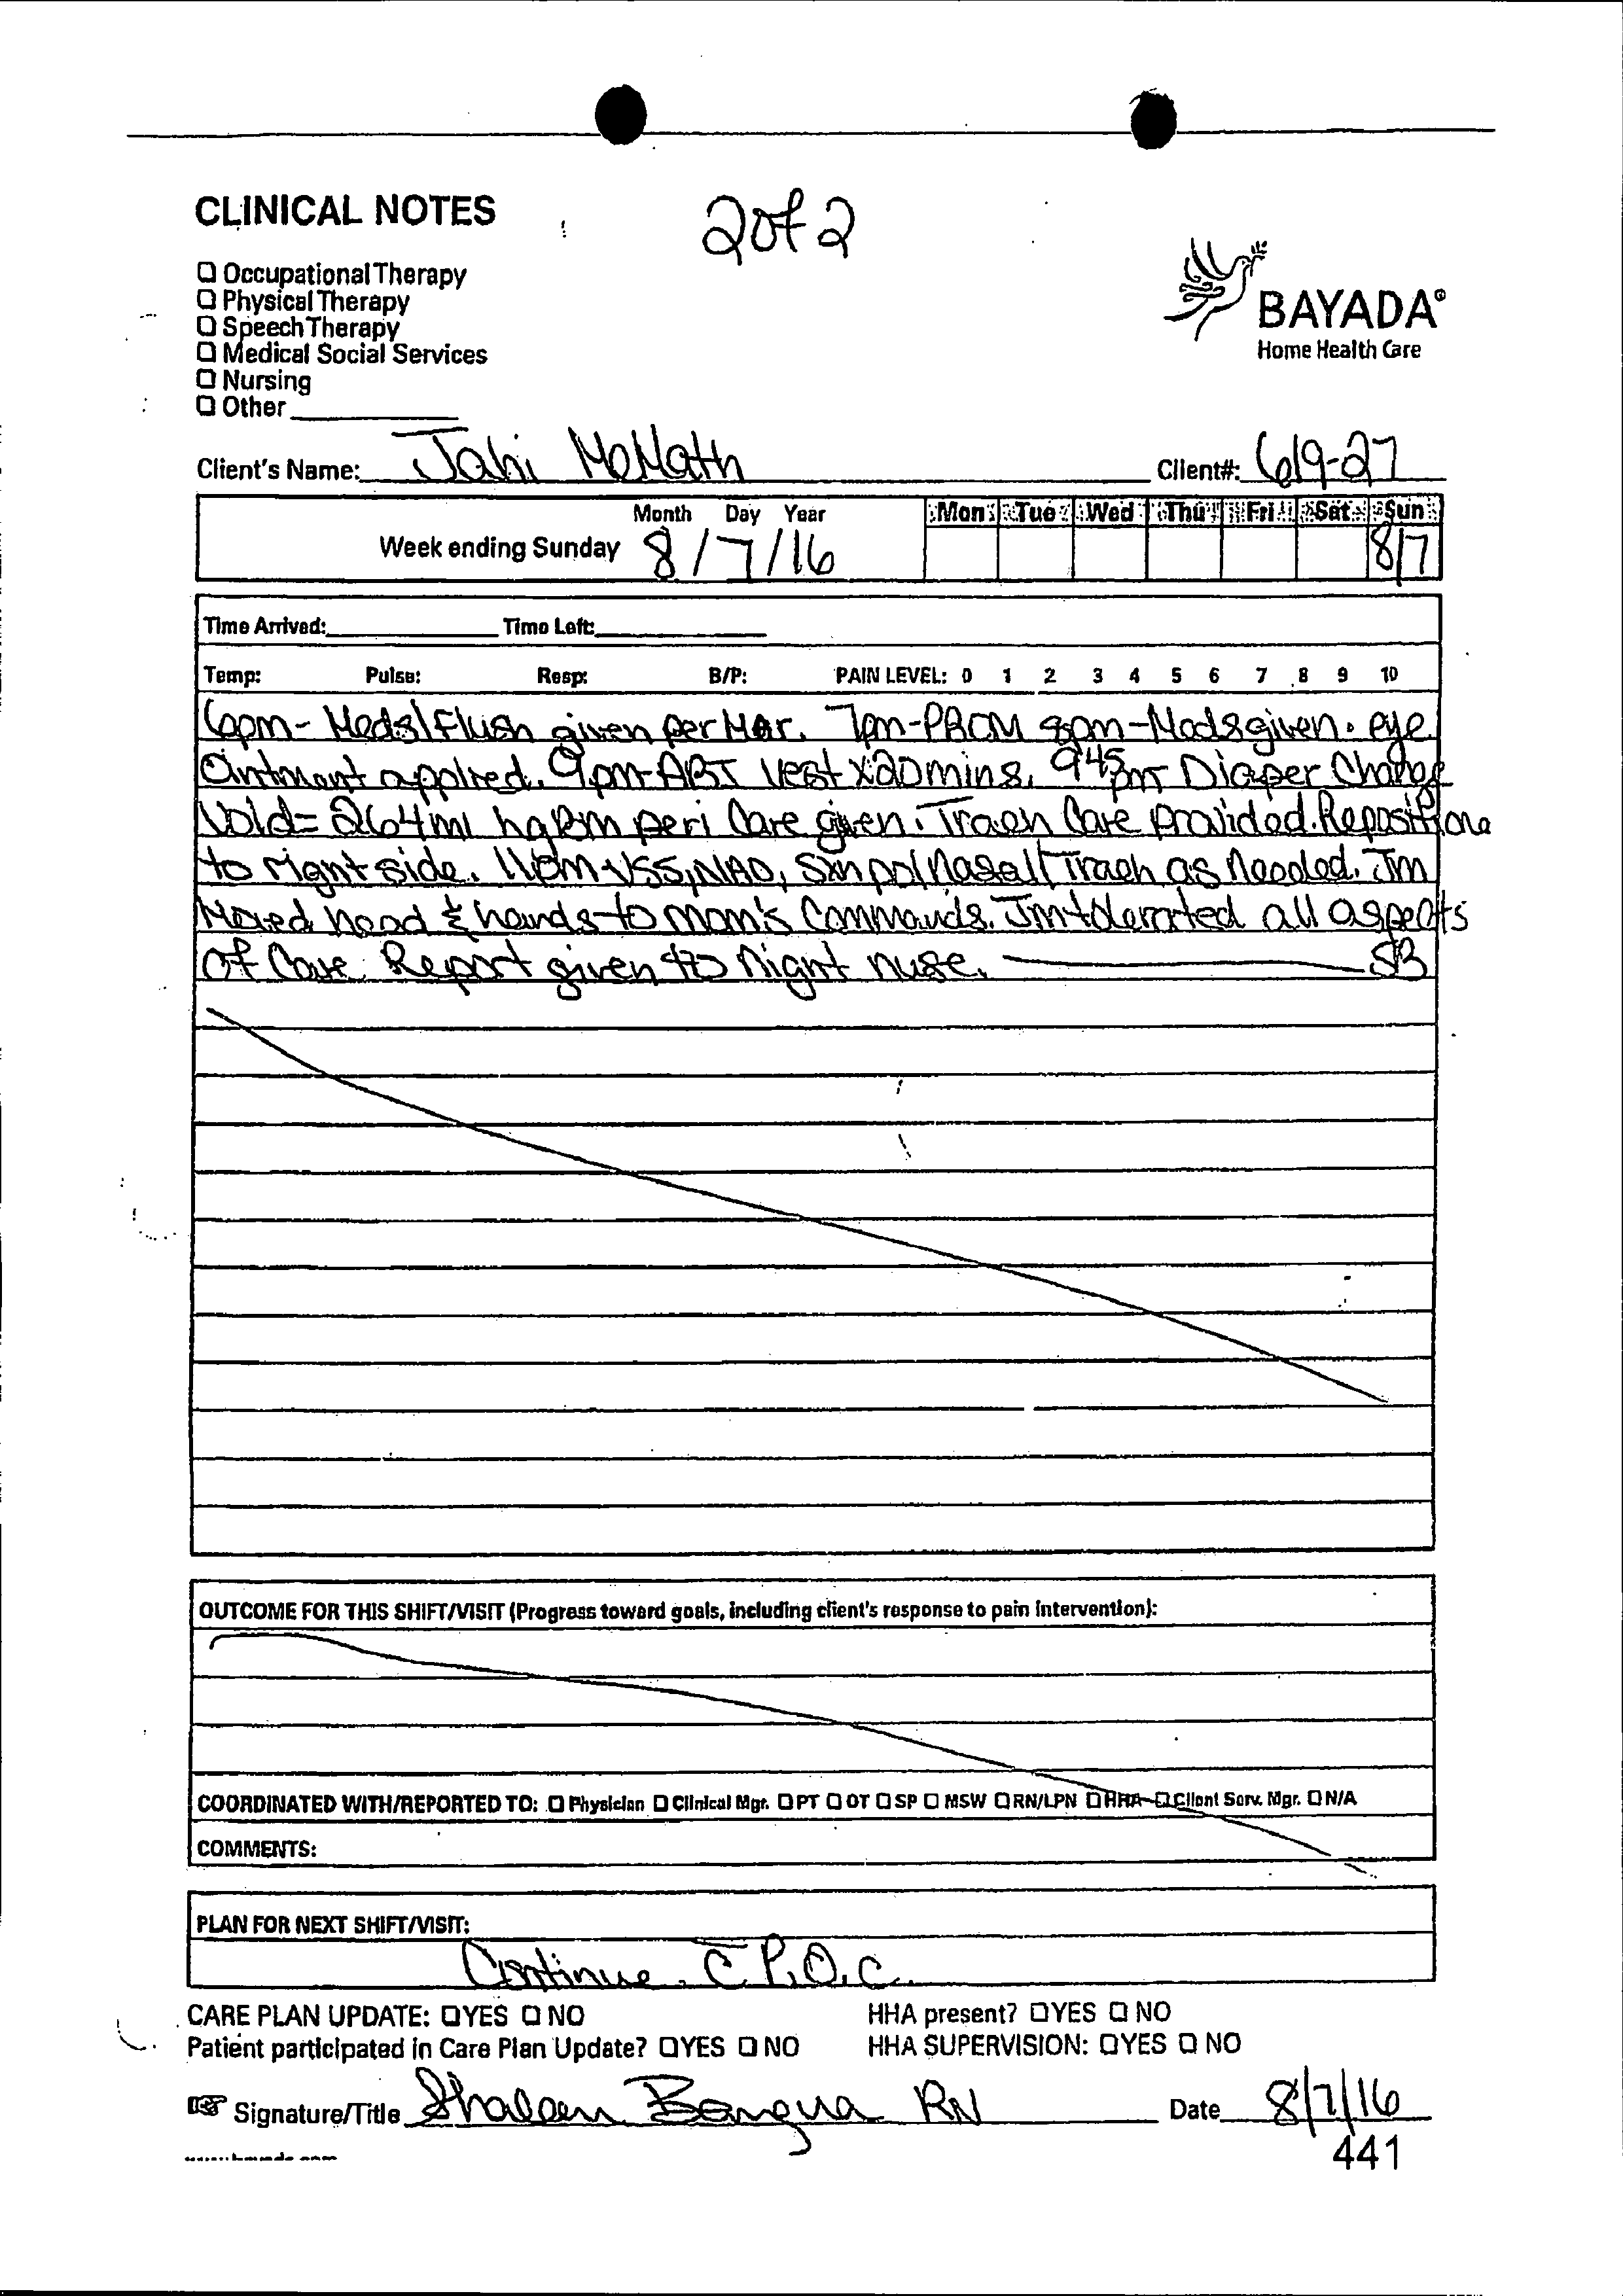 CLINICAL NOTES
2 of 2
Occupational Therapy
Physical Therapy
Speech Therapy
Medical Social Services
Nursing
Other
BAYADA®
Home Health Care
Client's Name: Jahi McMath Client#: 619-27
Month Day Year Mon Tue Wed Thu Fri Sat Sun
Week ending Sunday 8/7/16 8/7
Time Arrived: Time Left:
Temp: Pulse: Resp: B/P: PAIN LEVEL: 0 1 2 3 4 5 6 7 8 9 10
6pm- Meds/Flush given per Mar. 7pm-PROM 8pm-Meds given. eye
Ointment applied. 9pm-ABI Vest x20mins. 945pm Diaper Change
Void= 264ml peri Care given. Trach Care provided. Reposition
to right side. 11pm-VSS, NAD, Sxn po/Nasal/Trach as Needed. Jm
Moved head & hands to mom's Commands. Jm tolerated all aspects
of Care. Report given to Night nurse. SB
OUTCOME FOR THIS SHIFT/VISIT (Progress toward goals, including client's response to pain intervention):
COORDINATED WITH/REPORTED TO: Physician Clinical Mgr. PT OT SP MSW RN/LPN HHA Client Serv. Mgr. N/A
COMMENTS:
PLAN FOR NEXT SHIFT/VISIT:
Continue c̄ P.O.C.
CARE PLAN UPDATE: YES NO HHA present? YES NO
Patient participated in Care Plan Update? YES NO HHA SUPERVISION: YES NO
Signature/Title Bangura RN Date 8/7/16
441